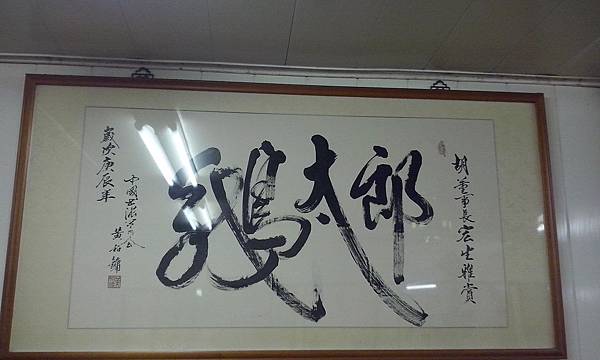 胡董事長宏生雅賞
鵝太郎
歲次庚辰年
中國書法學會黃